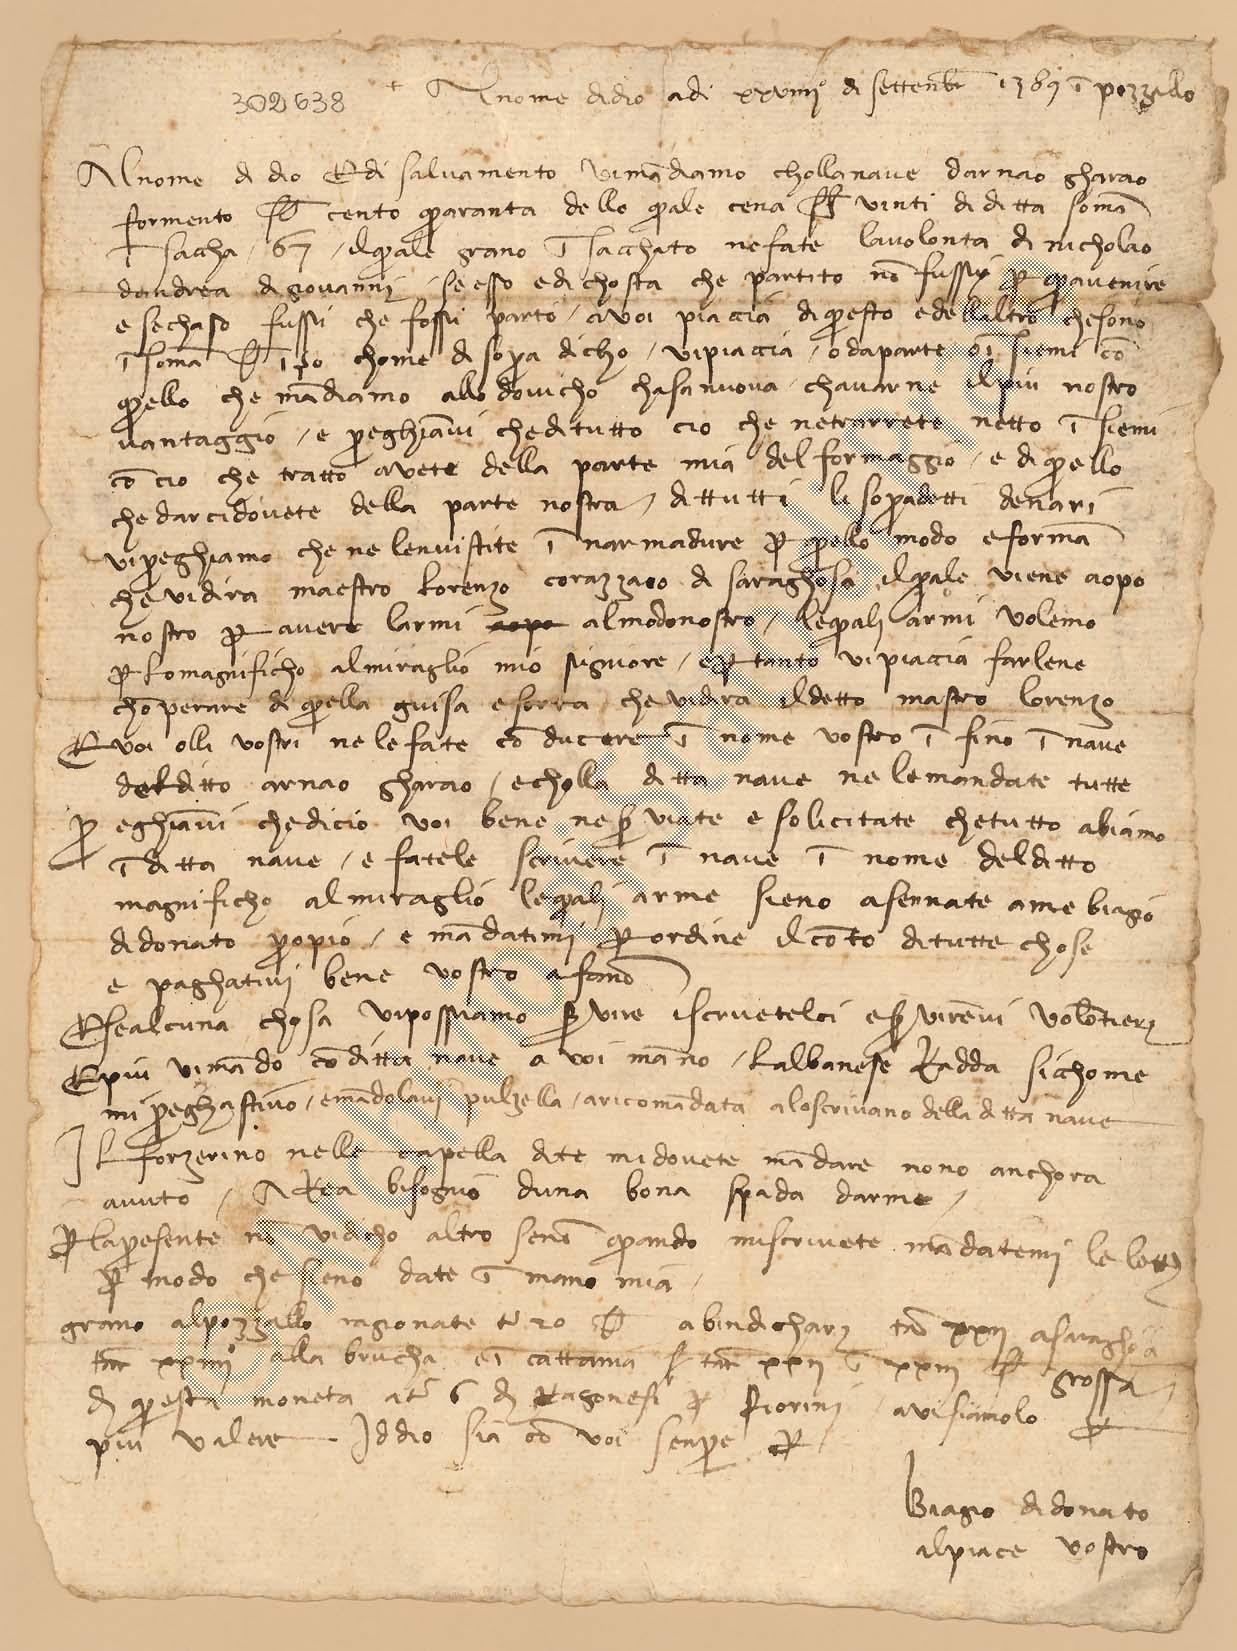 302638
+ Al nome di dio adi xxviiij° di settenbr 1389 ī pozzallo
Al nome di dio E di salvamento vi mādiamo cholla nave darnao gharao
formento s cento qaranta dello qale cen a s vinti di ditta somā
ī saccha 67 / el qale grano ī sacchato ne fate la volonta di nicholao
dandrea di giovannj / se esso e di chosta che partito nō fussi p qavenire
e se chaso fussi che fossi parto / a voi piaccia di qesto e dellaltro che sono
ī somā s 120 chome di sopa dicho / vi piaccia / o da parte o ī siemi cō
qello che mādiamo allodovicho chasa nuova / chavarne el piu nostro
vantaggio / e peghiāvi che di tutto cio che ne trarrete netto ī siemi
cō cio che tratto avete della parte mia del formaggio / e di qello
che dar ci dovete della parte nostra / di ttutti li sopadetti denari
vi peghiamo che ne lenvistite ī narmadure p qello modo e formā
che vi dira maestro Lorenzo corazzaio di saraghosa el qale viene a opo
nostro p avere larmi almodo nostro / le qali armi volemo
p lo magnificho almiraglio mio signiore / e p tanto vi piaccia farlene
chōperare di qella guisa e sorta che vi dira el detto mastro lorenzo
E voi olli vostri ne le fate cō ducere ī nome vostro ī fino ī nave
del ditto arnao gharao / e cholla ditta nave ne le mandate tutte
p eghiāvi che di cio voi bene ne sviate e solicitate che tutto abiamo
ī ditta nave / e fatele scrivere ī nave ī nome del ditto
magnificho almiraglio le qali arme sieno asennate a me biagio
di donato popio / e mādatimi p ordine el cōto di tutte chose
e paghativi bene vostro afanō
E se alcuna chosa vi possiamo svire iscrivetelci e svirēvi volōtierj
E piu vi mādo cō ditta nave a voi māno / Lalbanese Radda sicchome
mi peghastivo / e mādolavi pulzella / aricomādata a lo scrivano della ditta nave
Il forzerino nelle capella di te mi dovete mādare nonō anchora
avuto / Area bisognio duna bona spada darme /
p la pesente nō vi dicho altro senō qando mi scrivete mādatemi le lettj
p modo che sieno date ī mano mia /
grano al pozzallo ragionate tr 20 s a bindicharj tr xxij a saraghosa
tr xxiiij° alla brucha e ī cattania tr xxij ī xxiij s grossa
di qesta moneta a tr 6 di Ragonesi p fiorini / avisiāvolo p
piu valere Iddio sia cō voi senpe p
Biagio di donato
al piace vostro